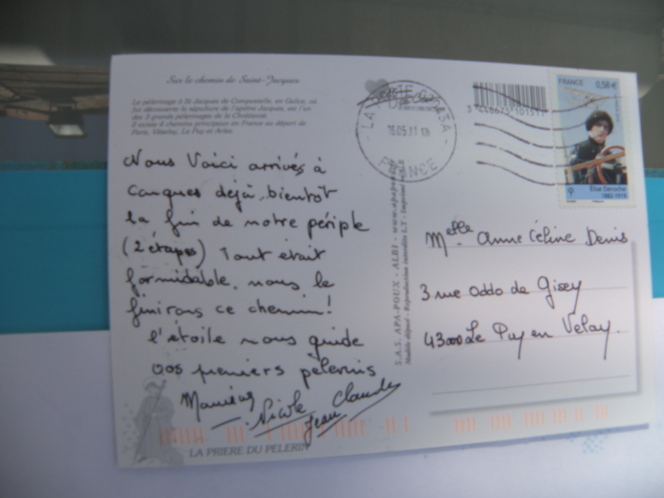 Sur le chemin de Saint-Jacques
Le pèlerinage à St Jacques de Compostelle, en Galice, où
fut découverte la sépulture de l'apôtre Jacques, est l'un
des 3 grands pèlerinages de la Chrétienté.
Il existe 4 chemins principaux en France au départ de
Paris, Vézelay, Le Puy et Arles
Nous Voici arrivés à
Conques déjà, bientôt
la fin de notre périple
(2 étapes) Tout était
formidable, nous le
finirons ce chemin!
l'étoile nous guide
vos premiers pèlerins
Nicole
Jean Claude
LA PRIERE DU PELERIN
LA POSTE
16.05.11
FRANCE
FRANCE 0,58 €
Elise Deroche
1882-1919
S.A.S. APA-POUX - ALBI
Melle Anne Céline Denis
3 rue Oddo de Gisey
43000 Le Puy en Velay.